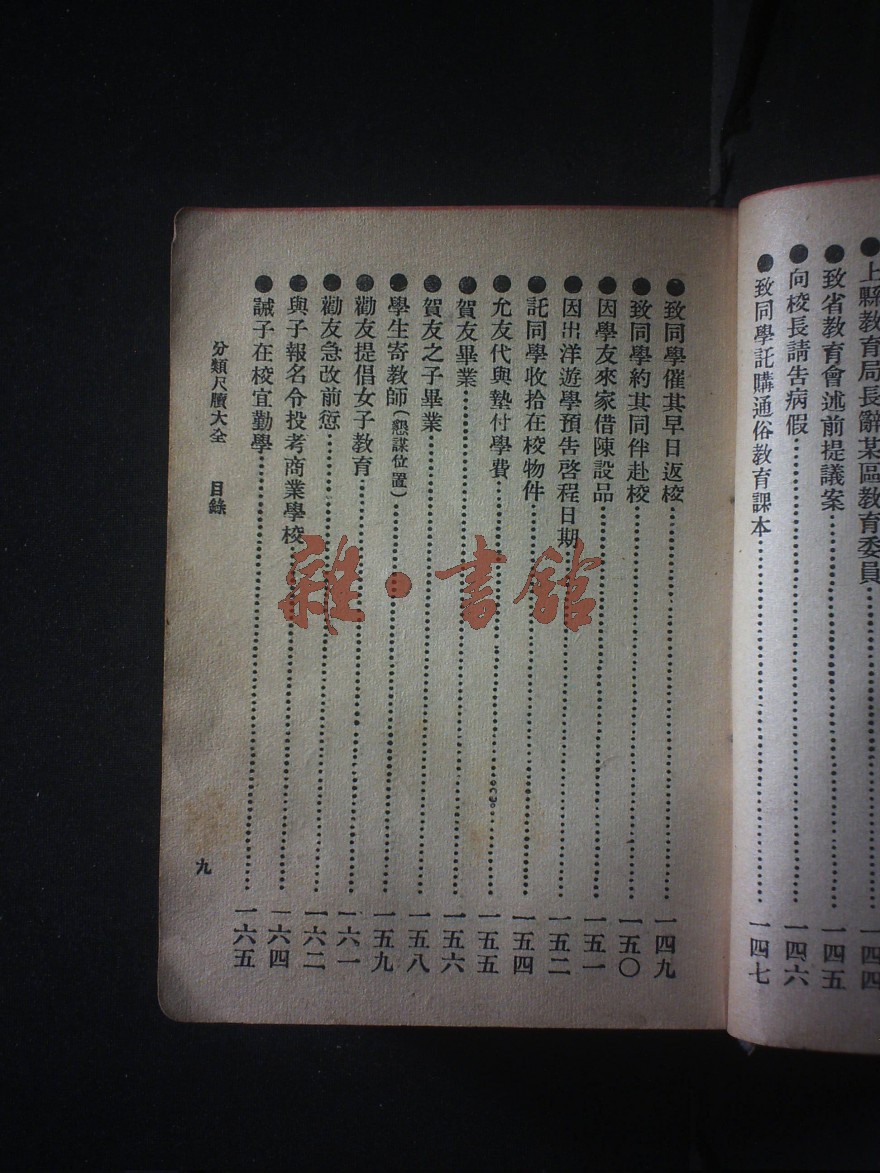 上縣教育局長辭某區教育委員……一四四
●致省教育會述前提議案……一四五
●向校長請告病假……一四六
●致同學託購通俗教育課本……一四七
●致同學催其早日返校……一四九
●致同學約其同伴赴校……一五〇
●因學友來家借陳設品……一五一
●因出洋遊學預告啓程日期……一五二
●託同學收拾在校物件……一五四
●允友代與墊付學費……一五五
●賀友畢業……一五六
●賀友之子畢業……一五八
●學生寄教師(懇謀位置)……一五九
●勸友提倡女子教育……一六一
●勸友急改前愆……一六二
●與子報名令投考商業學校……一六四
●誡子在校宜勤學……一六五
分類尺牘大全 目錄
九
雜·書館